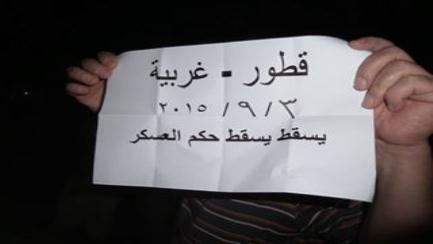 قطور - غربية
٢٠١٥ / ٩ / ٣
يسقط يسقط حكم العسكر